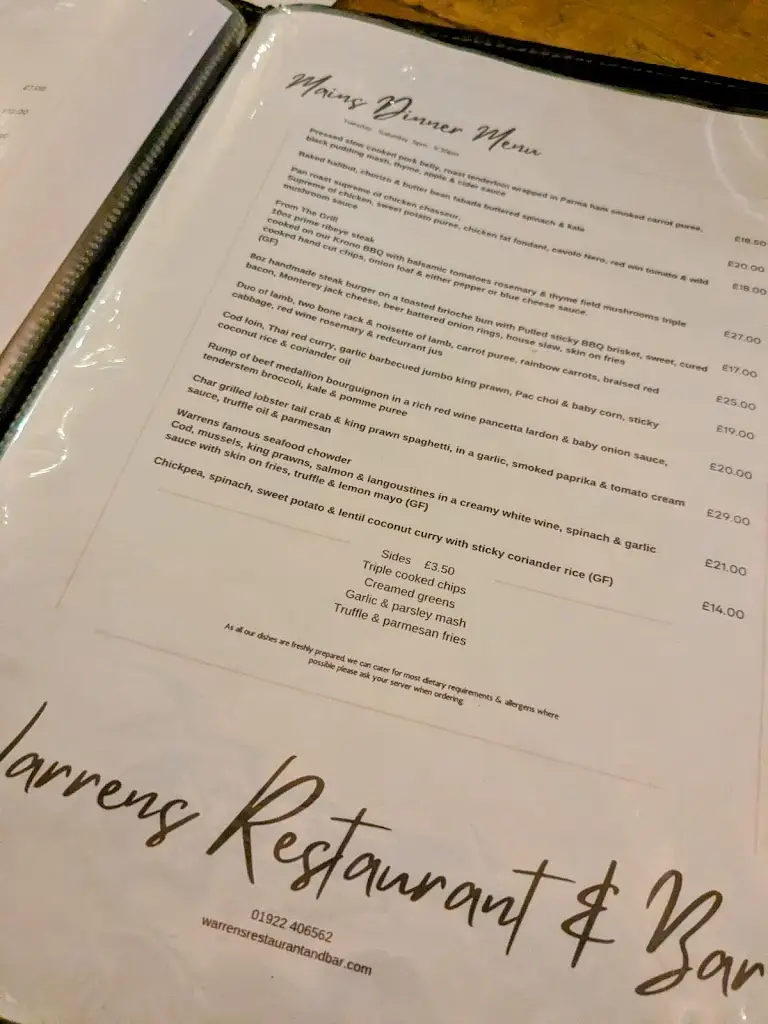 £7.00
Mains Dinner Menu
Tuesday - Saturday 5pm - 9.30pm
Pressed slow cooked pork belly, roast tenderloin wrapped in Parma ham smoked carrot puree,
black pudding mash, thyme, apple & cider sauce
£18.50
Baked halibut, chorizo & butter bean fabada buttered spinach & kale
£20.00
Pan roast supreme of chicken chasseur,
Supreme of chicken, sweet potato puree, chicken fat fondant, cavolo Nero, red win tomato & wild
mushroom sauce
£18.00
From The Grill
10oz prime ribeye steak
cooked on our Krono BBQ with balsamic tomatoes rosemary & thyme field mushrooms triple
cooked hand cut chips, onion loaf & either pepper or blue cheese sauce.
(GF)
£27.00
8oz handmade steak burger on a toasted brioche bun with Pulled sticky BBQ brisket, sweet, cured
bacon, Monterey jack cheese, beer battered onion rings, house slaw, skin on fries
£17.00
Duo of lamb, two bone rack & noisette of lamb, carrot puree, rainbow carrots, braised red
cabbage, red wine rosemary & redcurrant jus
£25.00
Cod loin, Thai red curry, garlic barbecued jumbo king prawn, Pac choi & baby corn, sticky
coconut rice & coriander oil
£19.00
Rump of beef medallion bourguignon in a rich red wine pancetta lardon & baby onion sauce,
tenderstem broccoli, kale & pomme puree
£20.00
Char grilled lobster tail crab & king prawn spaghetti, in a garlic, smoked paprika & tomato cream
sauce, truffle oil & parmesan
£29.00
Warrens famous seafood chowder
Cod, mussels, king prawns, salmon & langoustines in a creamy white wine, spinach & garlic
sauce with skin on fries, truffle & lemon mayo (GF)
£21.00
Chickpea, spinach, sweet potato & lentil coconut curry with sticky coriander rice (GF)
£14.00
Sides £3.50
Triple cooked chips
Creamed greens
Garlic & parsley mash
Truffle & parmesan fries
As all our dishes are freshly prepared, we can cater for most dietary requirements & allergens where
possible please ask your server when ordering.
Warrens Restaurant & Bar
01922 406562
warrensrestaurantandbar.com